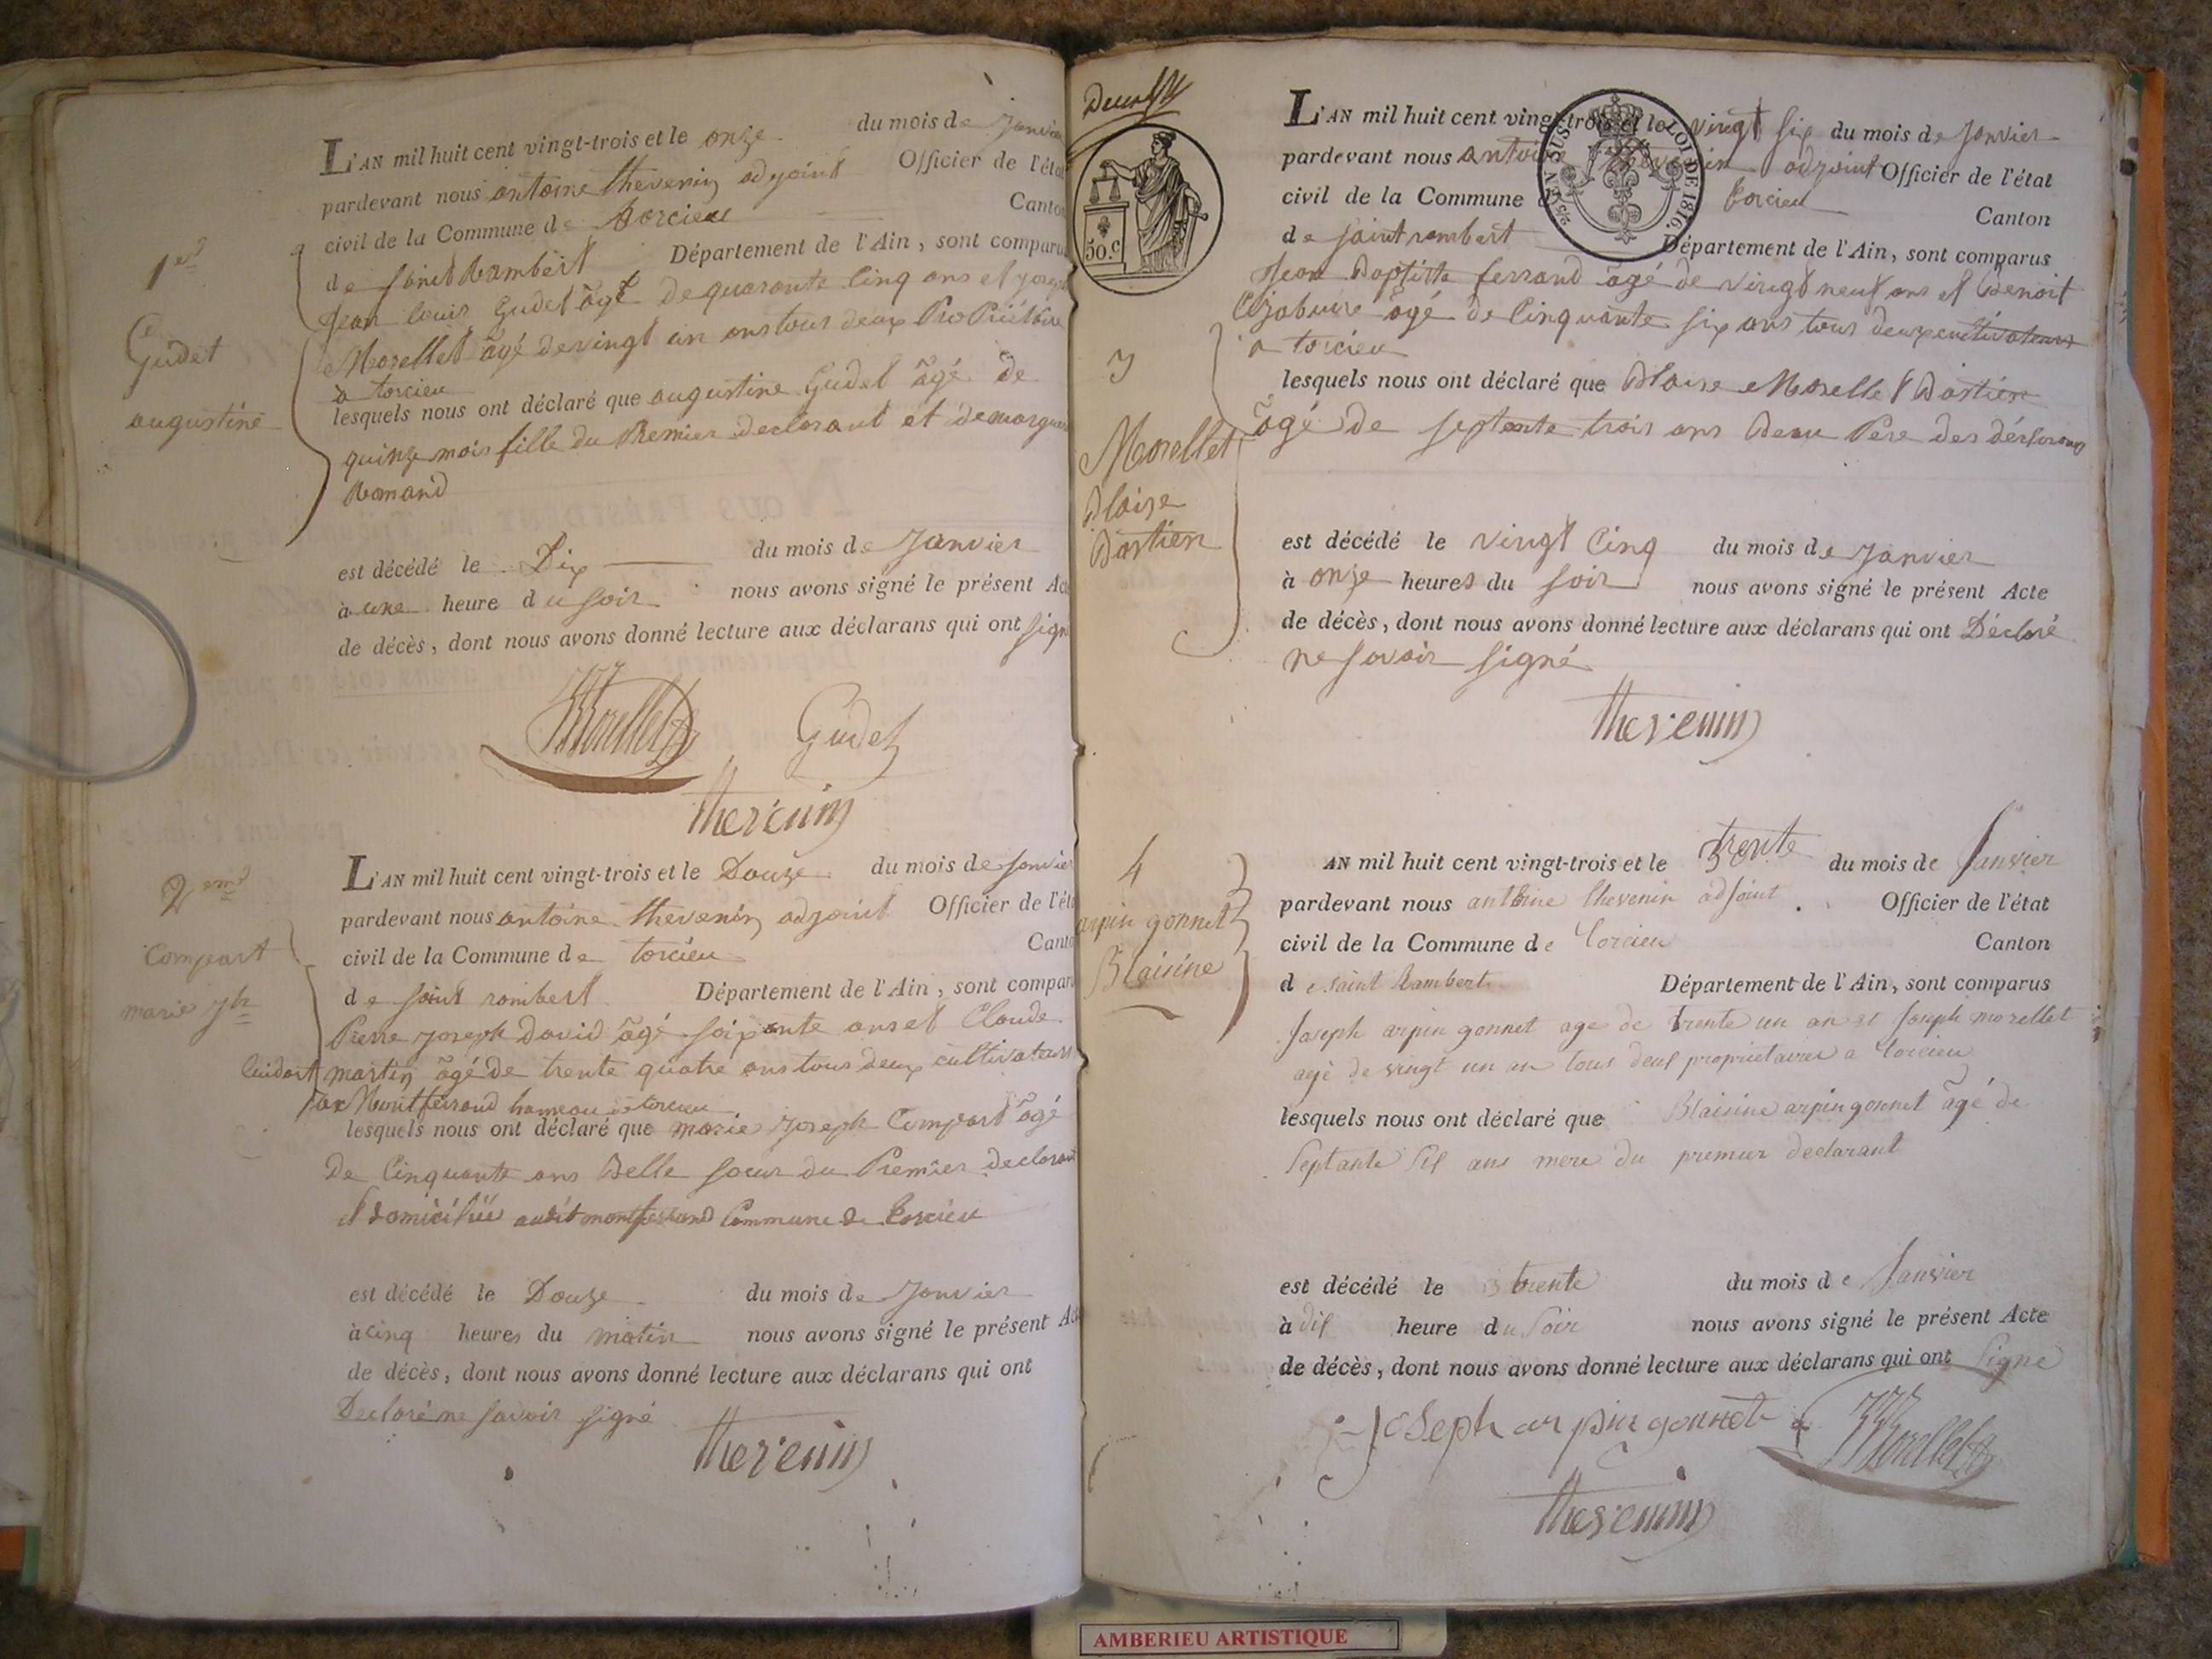 L'AN mil huit cent vingt-trois et le onze du mois de Janvier
pardevant nous antoine thevenin adjoint Officier de l'état
civil de la Commune de torcieu Canton
de saint Rambert Département de l'Ain, sont comparus
1er
Jean louis Gudet âgé de quarante Cinq ans et joseph
Gudet
augustine
Morellet âgé de vingt un ans tous deux Propriétaire
a torcieu
lesquels nous ont déclaré que augustine Gudet âgé de
quinze mois fille du Premier declarant et de margue
Romand
est décédé le Dix du mois de Janvier
à une heure du soir nous avons signé le présent Acte
de décès, dont nous avons donné lecture aux déclarans qui ont signé
Morellet Gudet
thevenin
L'AN mil huit cent vingt-trois et le Douze du mois de Janvier
2eme
pardevant nous antoine thevenin adjoint Officier de l'état
civil de la Commune de torcieu Canton
Compart
marie jh
de saint rambert Département de l'Ain, sont comparus
Pierre joseph David âgé soixante ans et Claude
martin âgé de trente quatre ans tous deux cultivateurs
Montferrand hameau de torcieu
lesquels nous ont déclaré que marie joseph Compart âgé
De Cinquante ans Belle soeur du Premier declarant
et domiciliée audit montferrand Commune de torcieu
est décédé le Douze du mois de Janvier
à cinq heures du matin nous avons signé le présent Acte
de décès, dont nous avons donné lecture aux déclarans qui ont
Declaré ne savoir signé
thevenin
50.c
LOI DE 1816.
L'AN mil huit cent vingt-trois et le vingt six du mois de Janvier
pardevant nous antoine thevenin adjoint Officier de l'état
civil de la Commune de torcieu Canton
de saint rambert Département de l'Ain, sont comparus
Jean Baptiste ferrand âgé de vingt neuf ans et Benoit
âgé de Cinquante six ans tous deux cultivateurs
a torcieu
3
Morellet
Blaise
Bastien
lesquels nous ont déclaré que Blaise Morellet Bastien
âgé de septente trois ans Beau Pere des déclarans
est décédé le vingt Cinq du mois de Janvier
à onze heures du soir nous avons signé le présent Acte
de décès, dont nous avons donné lecture aux déclarans qui ont Déclaré
ne savoir signé
thevenin
4
arpin gonnet
Blaisine
AN mil huit cent vingt-trois et le trente du mois de Janvier
pardevant nous antoine thevenin adjoint Officier de l'état
civil de la Commune de torcieu Canton
de saint Rambert Département de l'Ain, sont comparus
Joseph arpin gonnet age de trente un an et Joseph morellet
agé de vingt un an tous deux proprietaires a torcieu
lesquels nous ont déclaré que Blaisine arpin gonnet âgé de
septante six ans mere du premier declarant
est décédé le trente du mois de Janvier
à dix heure du soir nous avons signé le présent Acte
de décès, dont nous avons donné lecture aux déclarans qui ont signé
Joseph arpin gonnet Morellet
thevenin
AMBERIEU ARTISTIQUE